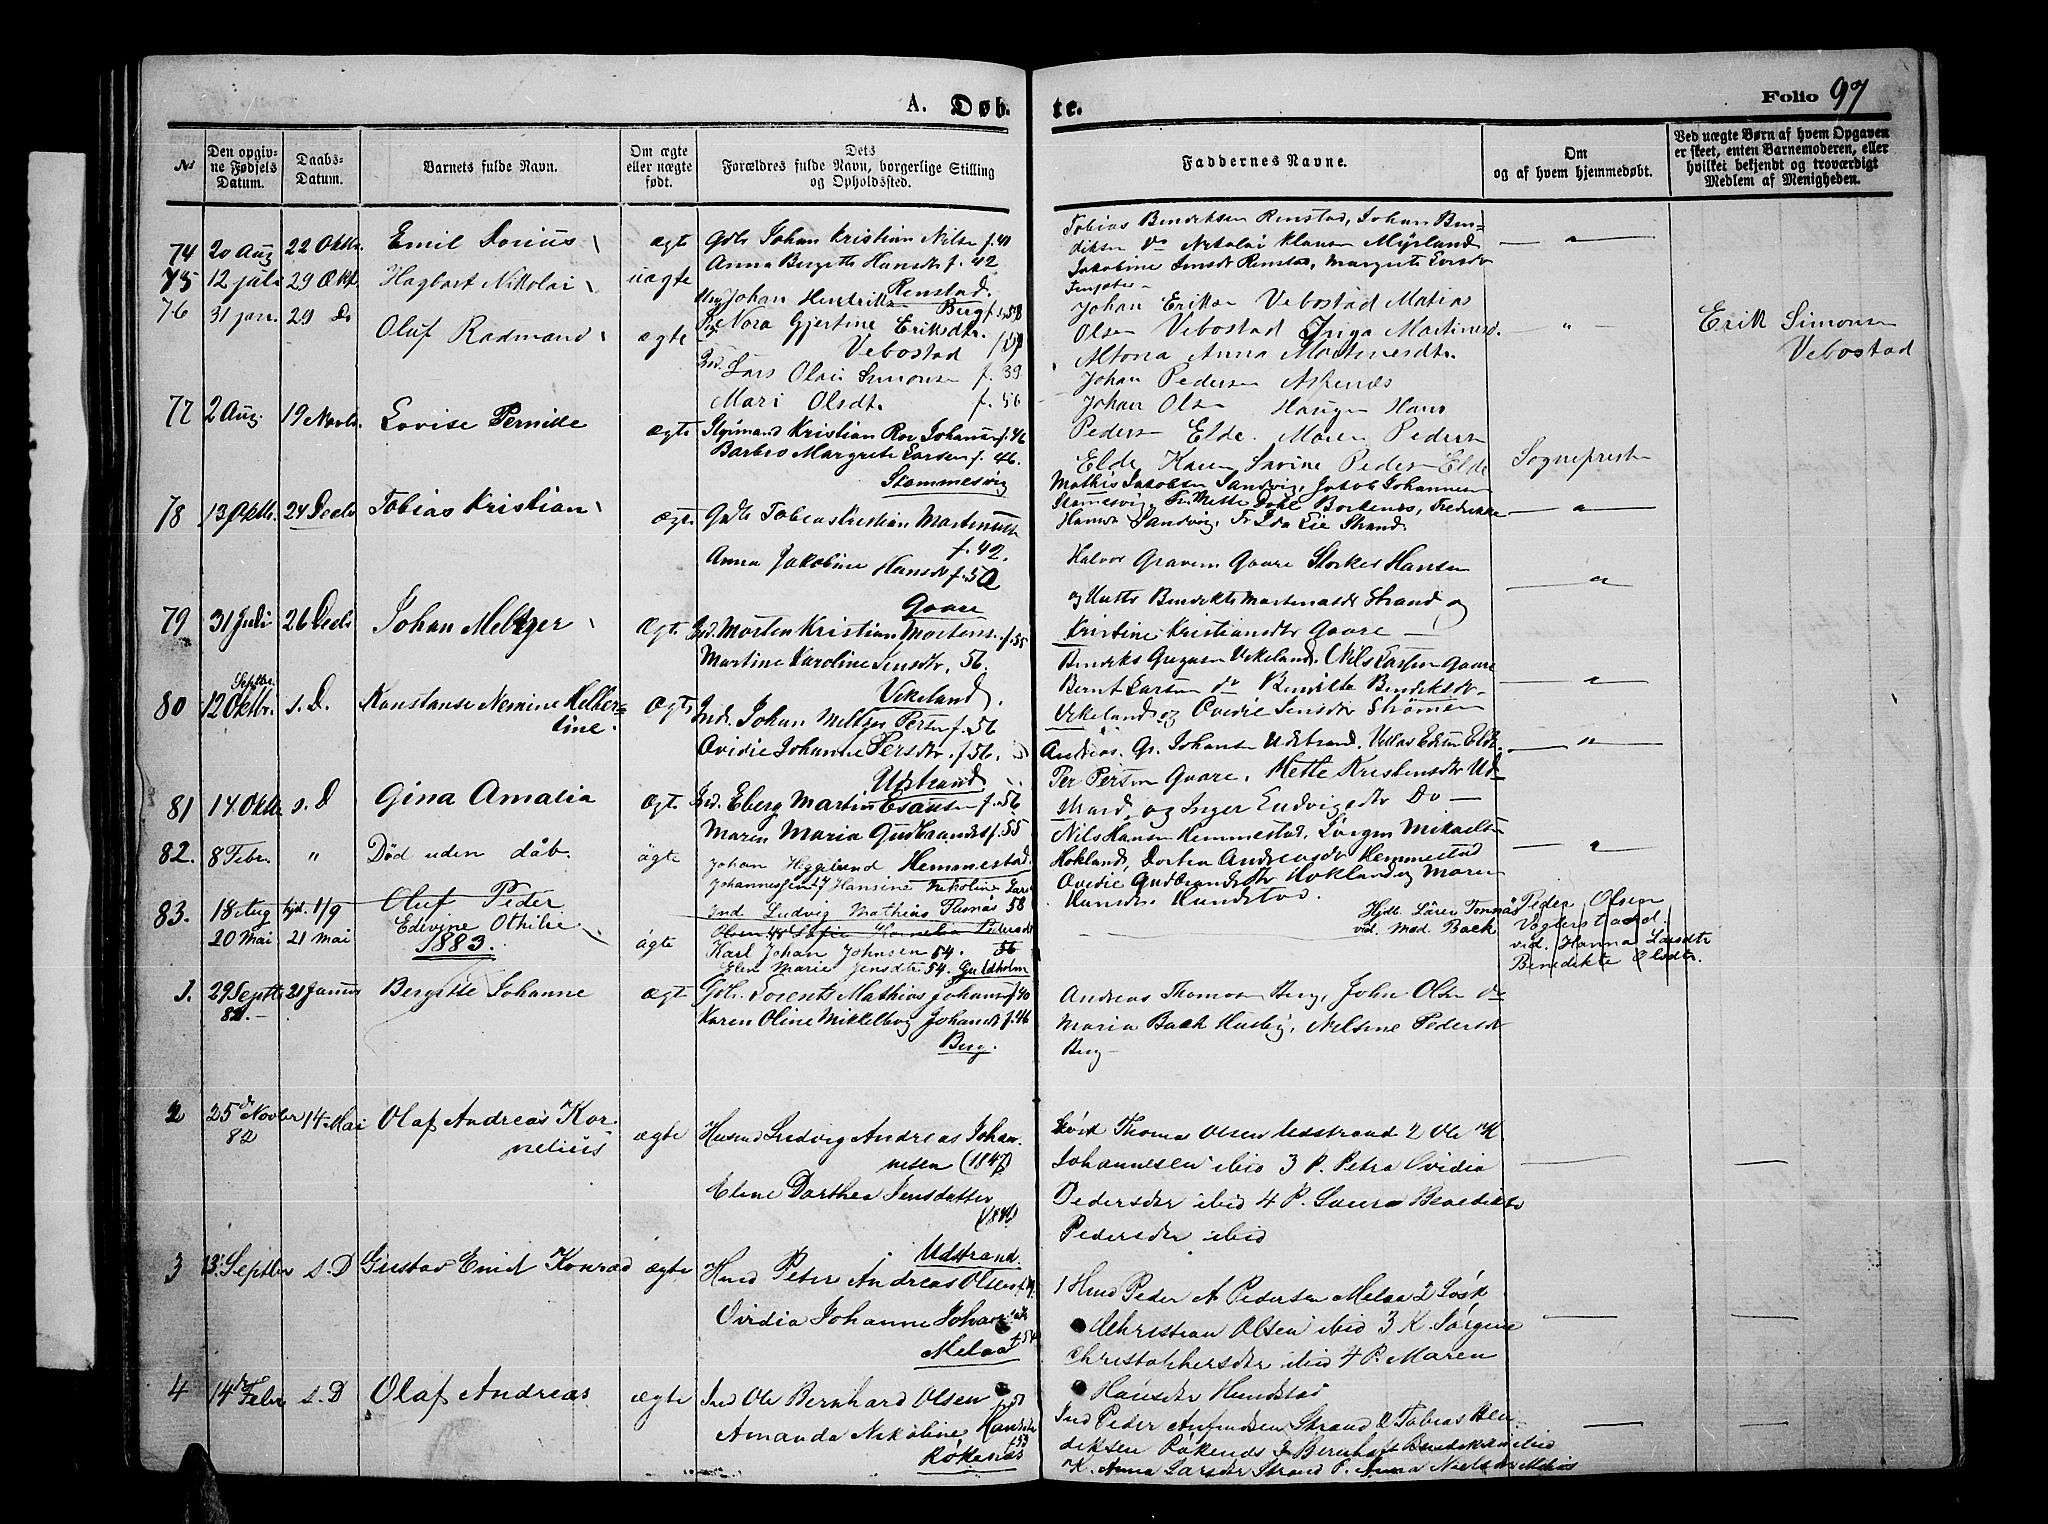 A. Døb- te. Folio 97
No
Den opgivne Fødsels Datum.
Daabs-Datum.
Barnets fulde Navn.
Om ægte eller uægte født.
Dets Forældres fulde Navn, borgerlige Stilling og Opholdssted.
Faddernes Navne.
Om og af hvem hjemmedøbt.
Ved uægte Børn af hvem Opgaven er skeet, enten Barnemoderen, eller hvilket bekjendt og troværdigt Medlem af Menigheden.
74 20 Aug 22 Oktbr. Emil Dorius ægte
Johan Kristian Nilsen f. 40
Anna Bergitte Hansdtr f. 42
Renstad.
Tobias Bendiksen Renstad, Johan Ben-
diksen do Nikolai Klausen Myrland
Jakobine Jensdtr Renstad, Margrete
75 12 juli 29 Okt. Hagbart Nikolai uægte
Johan Hendriksen Berg f. 58
Nora Gjertine Eriksdtr.
Vebostad
Johan Eriksen Vebostad Matias
Olsen Vebostad Inga Martinesd.
Altona Anna Martinesdtr.
Erik Simonsen
Vebostad
76 31 jan. 29 Do Oluf Radmand ægte
Ind. Lars Olai Simonsen f. 39
Mari Olsdtr. f. 56
Johan Pedersen Aspenes
Johan Olsen Haugen Hans
Pedersen Elde. Maren Pedersen
Elde Karen Savine Pedersen Elde
Sogneprest
77 2 Aug. 19 Novbr. Lovise Pernille ægte
Kristian Johansen f. 46
Barbro Margrete Larsen f. 46.
Stommesvig
Mathis Jakobsen Sandvig, Jakob Johannesen
Stomesvig, Fr. Mette Dahl Borkenes, Fredrikke
Hansen Sandvig, Fr. Ida Lie Strand.
78 13 Oktbr. 24 Decbr Tobias Kristian ægte
Gdbr Tobias Cristian Martinussen
f. 42.
Anna Jakobine Hansdtr f. 50
Gaare
Halvor Gravem Gaare Storker Hansen
Bendikte Martinasdtr Strand og
Kristine Kristiansdtr Gaare
79 31 Juli 26 Decbr Johan Meltzer Ægte
Ind. Morten Kristian Mortens. f. 55
Martine Karoline Jensdtr, 56.
Vikeland
Vikeland. Nils Larsen Gaare
Bernt Larsen do Bendikte Bendiksdtr
Vikeland og Ovedie Jensdtr Strømen
80 12 Septbr. Oktbr. s. D. Konstanse Nemine Helber=
tine. Ægte
Ind. Johan Meltzer Persen f. 56
Ovidie Johanne Persdtr. f. 56.
Udstrand
Andreas Gr. Johansen Udstrand.
Per Persen Gaare, Mette Kristensdtr Ud-
strand, og Inger Ludvigsdtr Do
81 14 Oktbr s. D Gina Amalia Ægte
Ind. Eberg Martin Esausen f. 56
Maren Maria Gudbrandsd. f. 55
Hemmestad.
Nils Hansen Hemmestad, Jørgen Mikaelsen
Hokland, Dortea Andreasdtr Hemmestad
Ovedie Gudbrandsdtr Hokland og Maren
Hansdtr Hundstad.
82. 8 Febr. " Død uden dåb. ægte
Johan Heggelund
Johannesen Hansine Nikoline
83. 18 Aug hjd. 1/9 Oluf Peder
Ind Ludvig Mathias
Olsen Sofie Kornelia Pedersdtr
Peder Olsen
Vogterstrand.
vid. Hanna Larsdtr
Benedikte Olsdtr.
20 Mai 21 Mai Edevine Othilie ægte
Karl Johan Johnsen 54.
Elen Marie Jensdtr 54. Guldholm
Hjdb. Lærer Tennås
vid. Mad. Back
1883.
1. 29 Septbr 82. 21 Januar Bergitte Johanne ægte
Gdbr. Lorents Mathias Johansen f. 40
Karen Oline Mikkelborg Johansdtr f. 46
Berg.
Andreas Thomasen Berg, John Olsen do
Maria Back Husby, Nelsine Pedersdtr
Berg
2 25de Novbr 82 14 Mai Olaf Andreas Kor-
nelius ægte
Husmd Ludvig Andreas Johan-
nesen (1847)
Elene Dorthea Jensdatter
Udstrand.
Thomas Olsen Udstrand 2 Ole K
Johannesen ibid 3 P. Petra Ovidia
Pedersdtr ibid 4 P. Laura Benedikte
Pedersdtr ibid
3 13 Septbr s. D Gustav Emil Konrad ægte
Hmd Peter Andreas Olsen
Ovidia Johanne
Melaa
1 Hmd Peder A Pedersen Melaa 2 Løsk
Christian Olsen ibid 3 K. Jørgine
Christophersdtr ibid 4 P. Maren
Hansdtr Hundstad
4 14de Febr s. D Olaf Andreas ægte
Ind Ole Bernhard Olsen
Amanda Nikoline Hansdtr
Røkenes
Ind Peder Anfindsen Strand 2 Tobias Ben-
diksen Røkenes 3 Bernhoft ibid
K. Anna Larsdtr Strand P. Anna